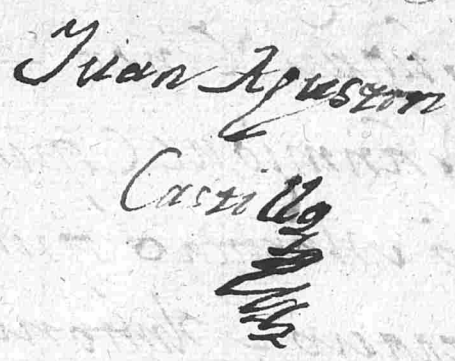 Juan Agustin
Castillo